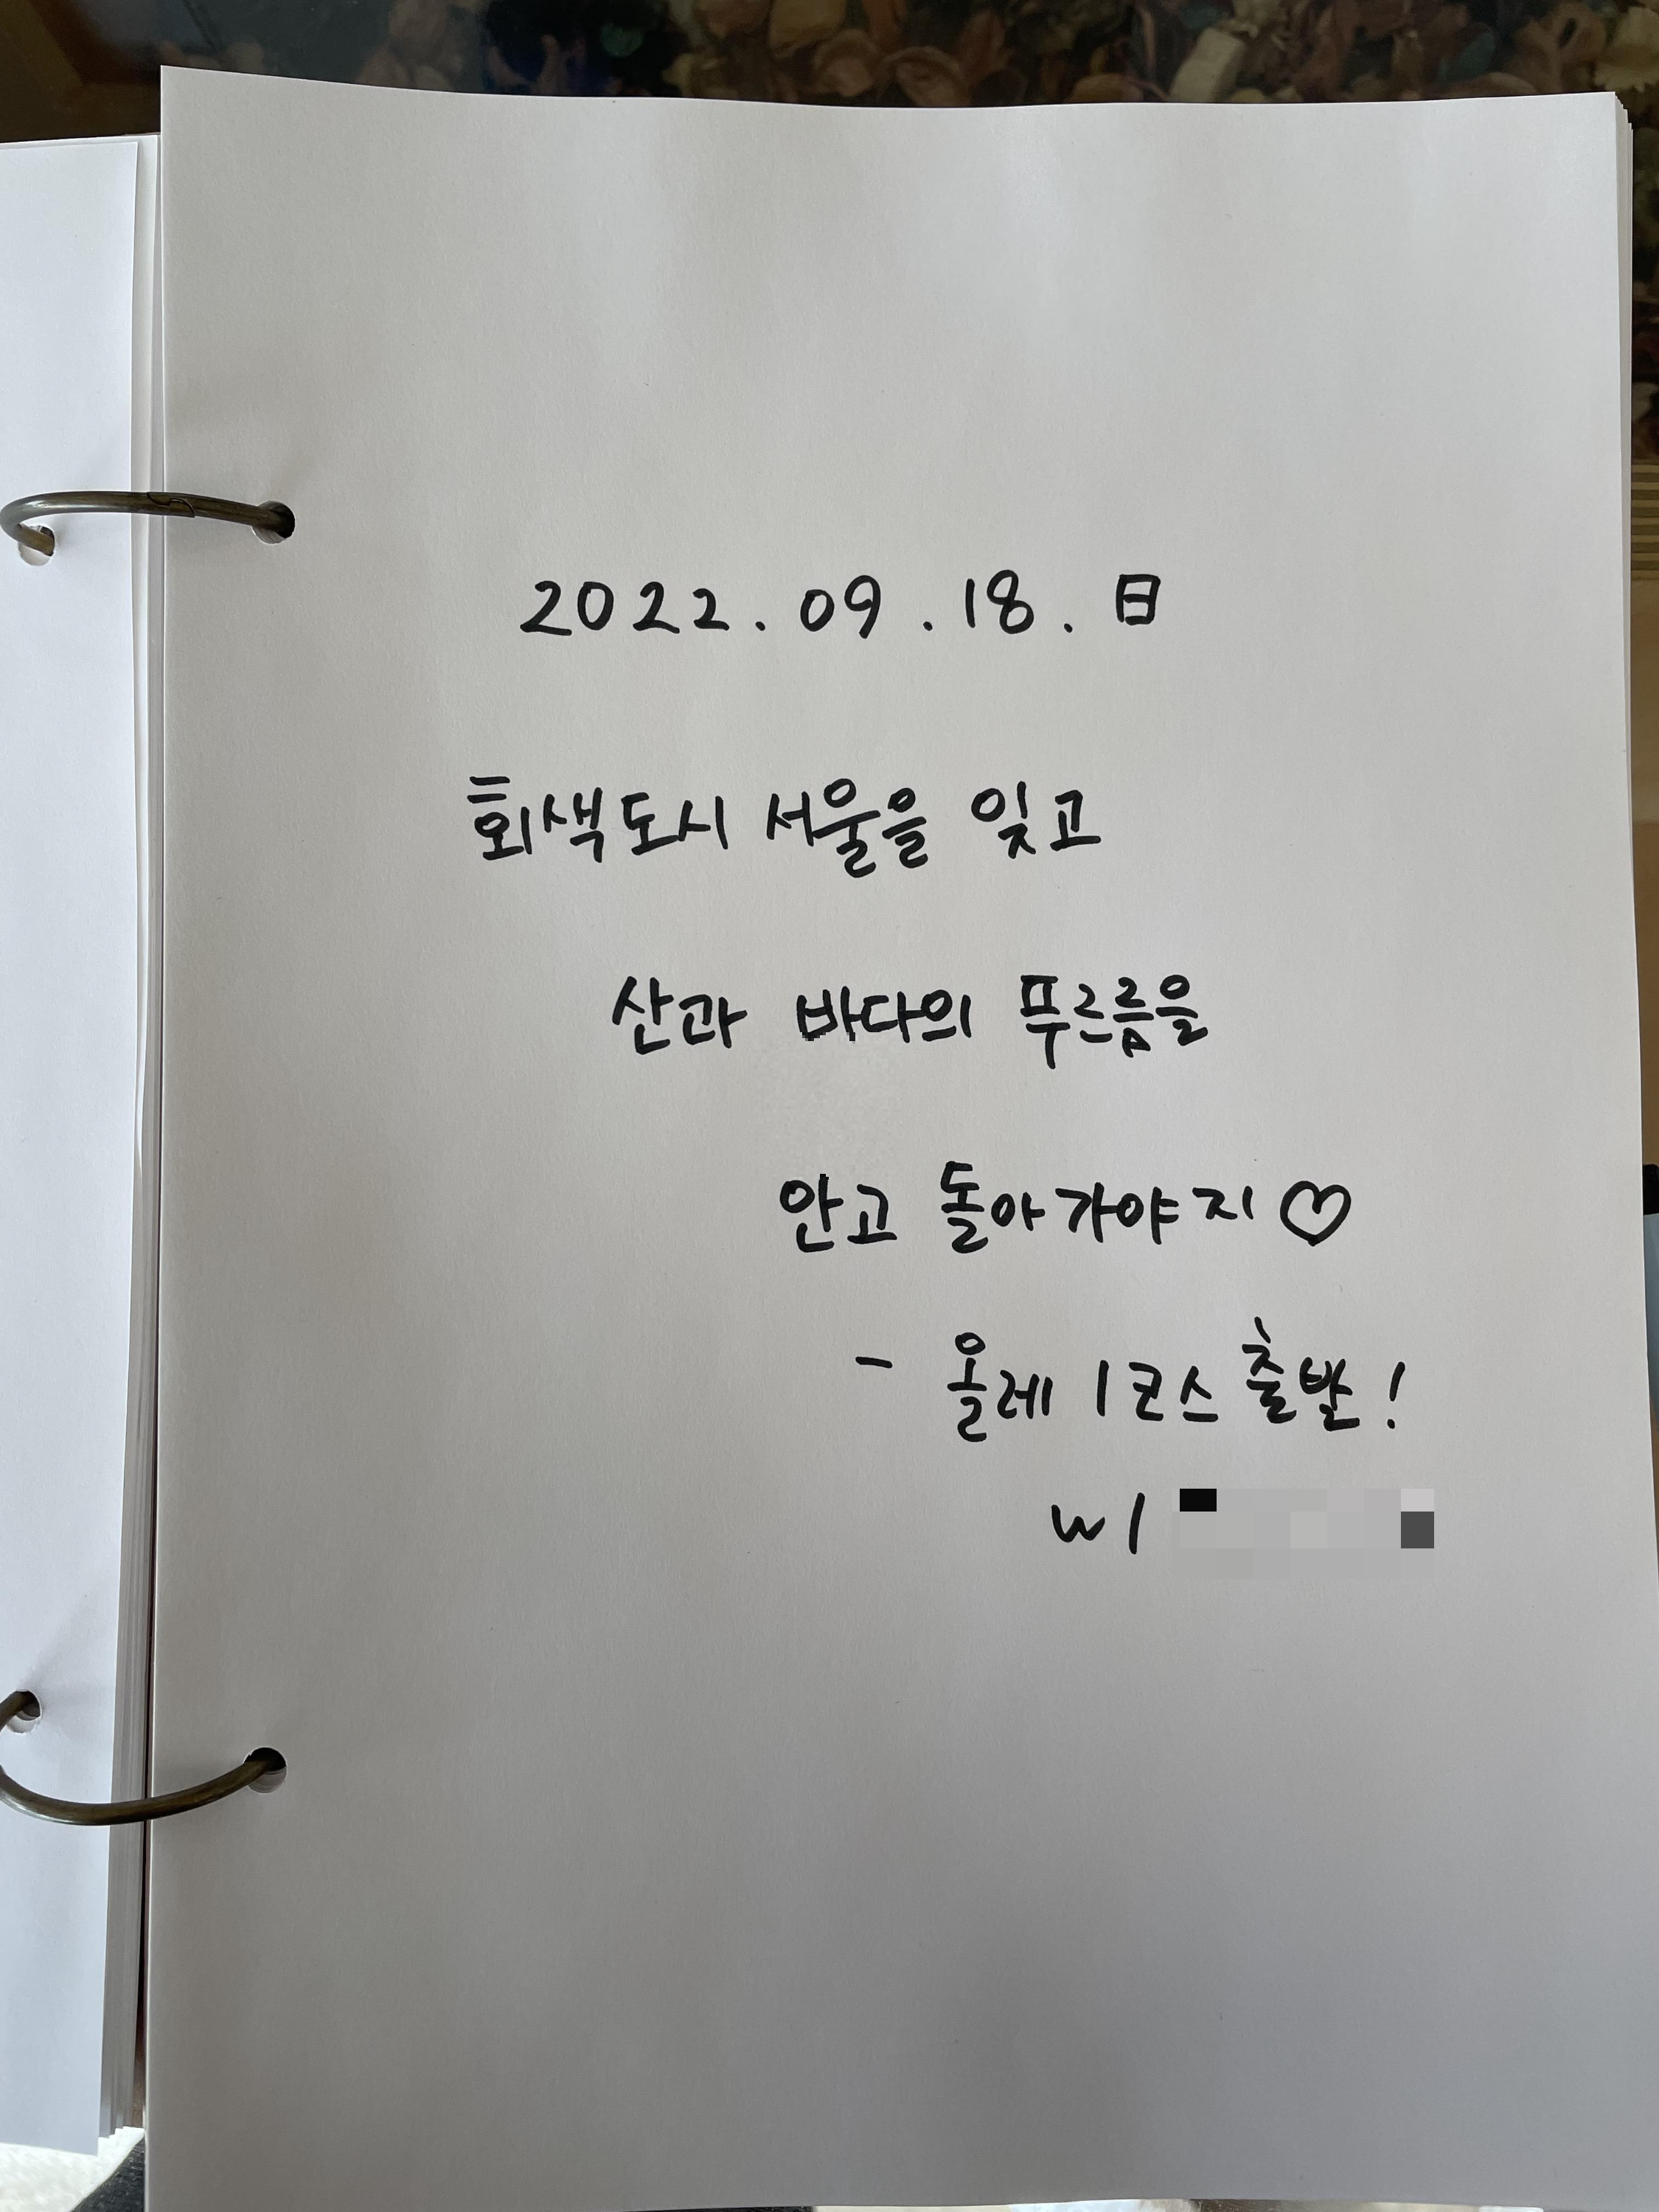 2022. 09. 18. 日
회색도시 서울을 잊고
산과 바다의 푸르름을
안고 돌아가야지♡
- 올레 1코스 출발!
w/